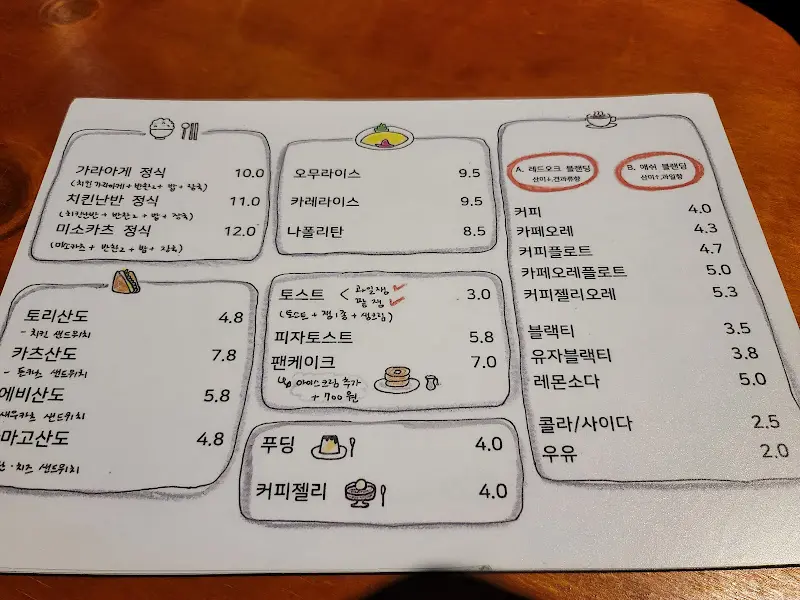 가라아게 정식 10.0
(치킨 가라아게 + 반찬2 + 밥 + 장국)
치킨난반 정식 11.0
(치킨난반 + 반찬2 + 밥 + 장국)
미소카츠 정식 12.0
(미소카츠 + 반찬2 + 밥 + 장국)
토리산도 4.8
- 치킨 샌드위치
카츠산도 7.8
- 돈카츠 샌드위치
에비산도 5.8
새우카츠 샌드위치
마고산도 4.8
· 치즈 샌드위치
오무라이스 9.5
카레라이스 9.5
나폴리탄 8.5
토스트 < 과일잼 ✓ 3.0
팥잼 ✓
(토스트 + 잼1종 + 생크림)
피자토스트 5.8
팬케이크 7.0
아이스크림 추가
+ 700원
푸딩 4.0
커피젤리 4.0
A. 레드오크 블랜딩
산미↓견과류향
B. 애쉬 블랜딩
산미↑과일향
커피 4.0
카페오레 4.3
커피플로트 4.7
카페오레플로트 5.0
커피젤리오레 5.3
블랙티 3.5
유자블랙티 3.8
레몬소다 5.0
콜라/사이다 2.5
우유 2.0